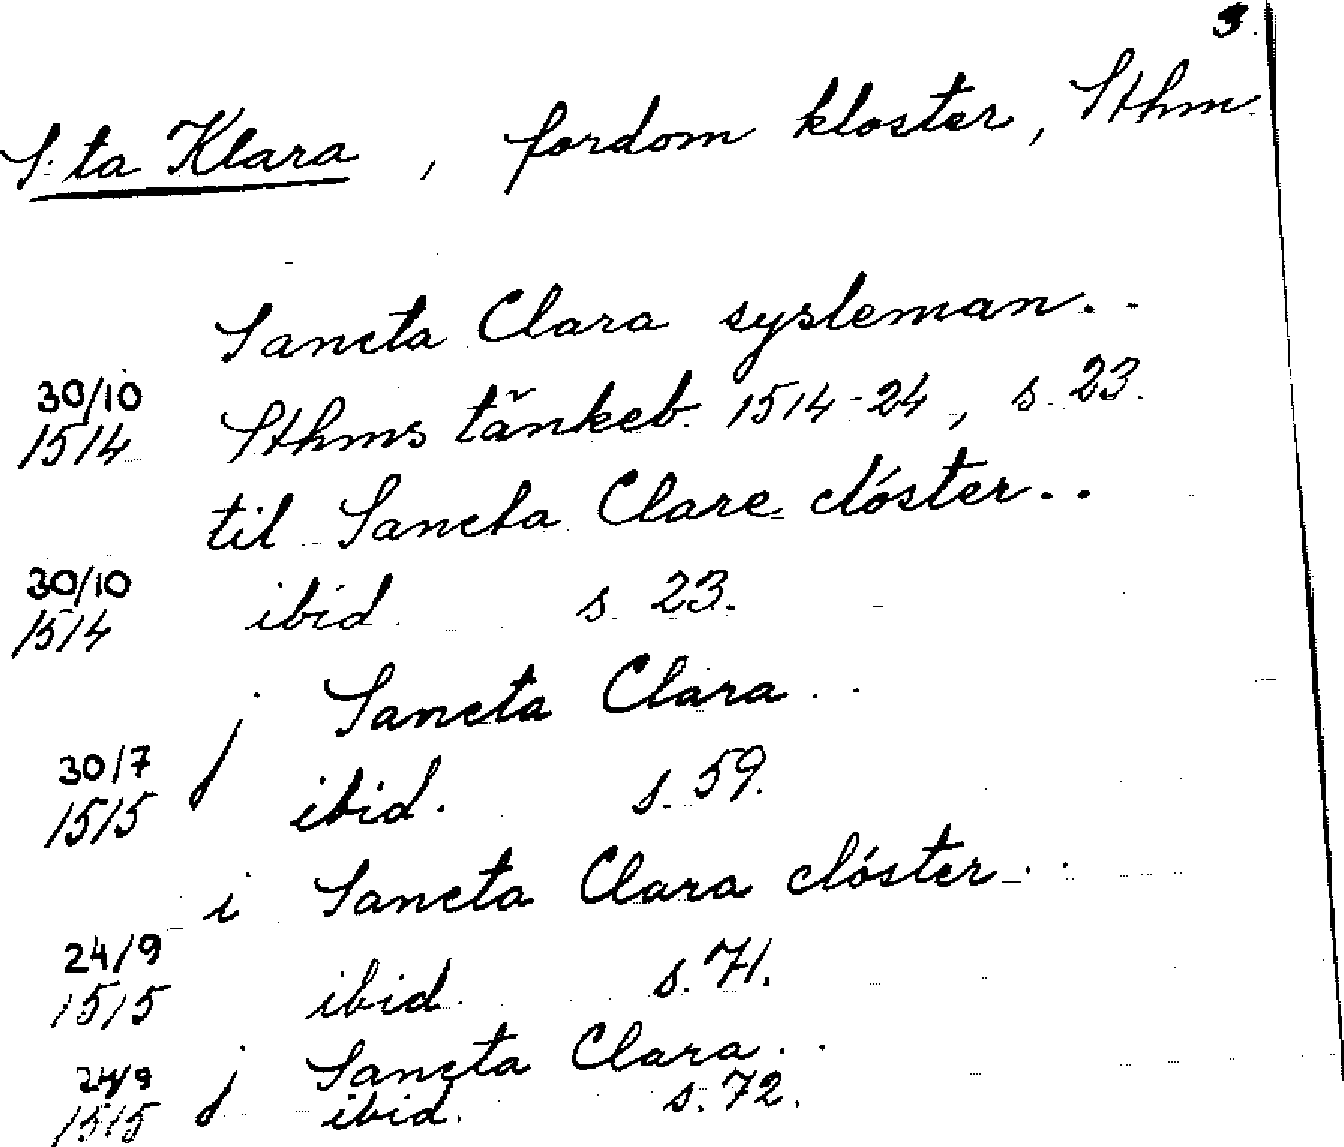 3.
S:ta Klara, fordom kloster, Sthm.
Sancta Clara sysleman..
30/10
1514 Sthms tänkeb. 1514-24, s. 23.
til Sancta Clare clóster..
30/10
1514 ibid. s. 23.
j Sancta Clara..
30/7
1515 ibid. s. 59.
i Sancta Clara clóster..
24/9
1515 ibid. s. 71.
j Sancta Clara..
24/9
1515 ibid. s. 72.